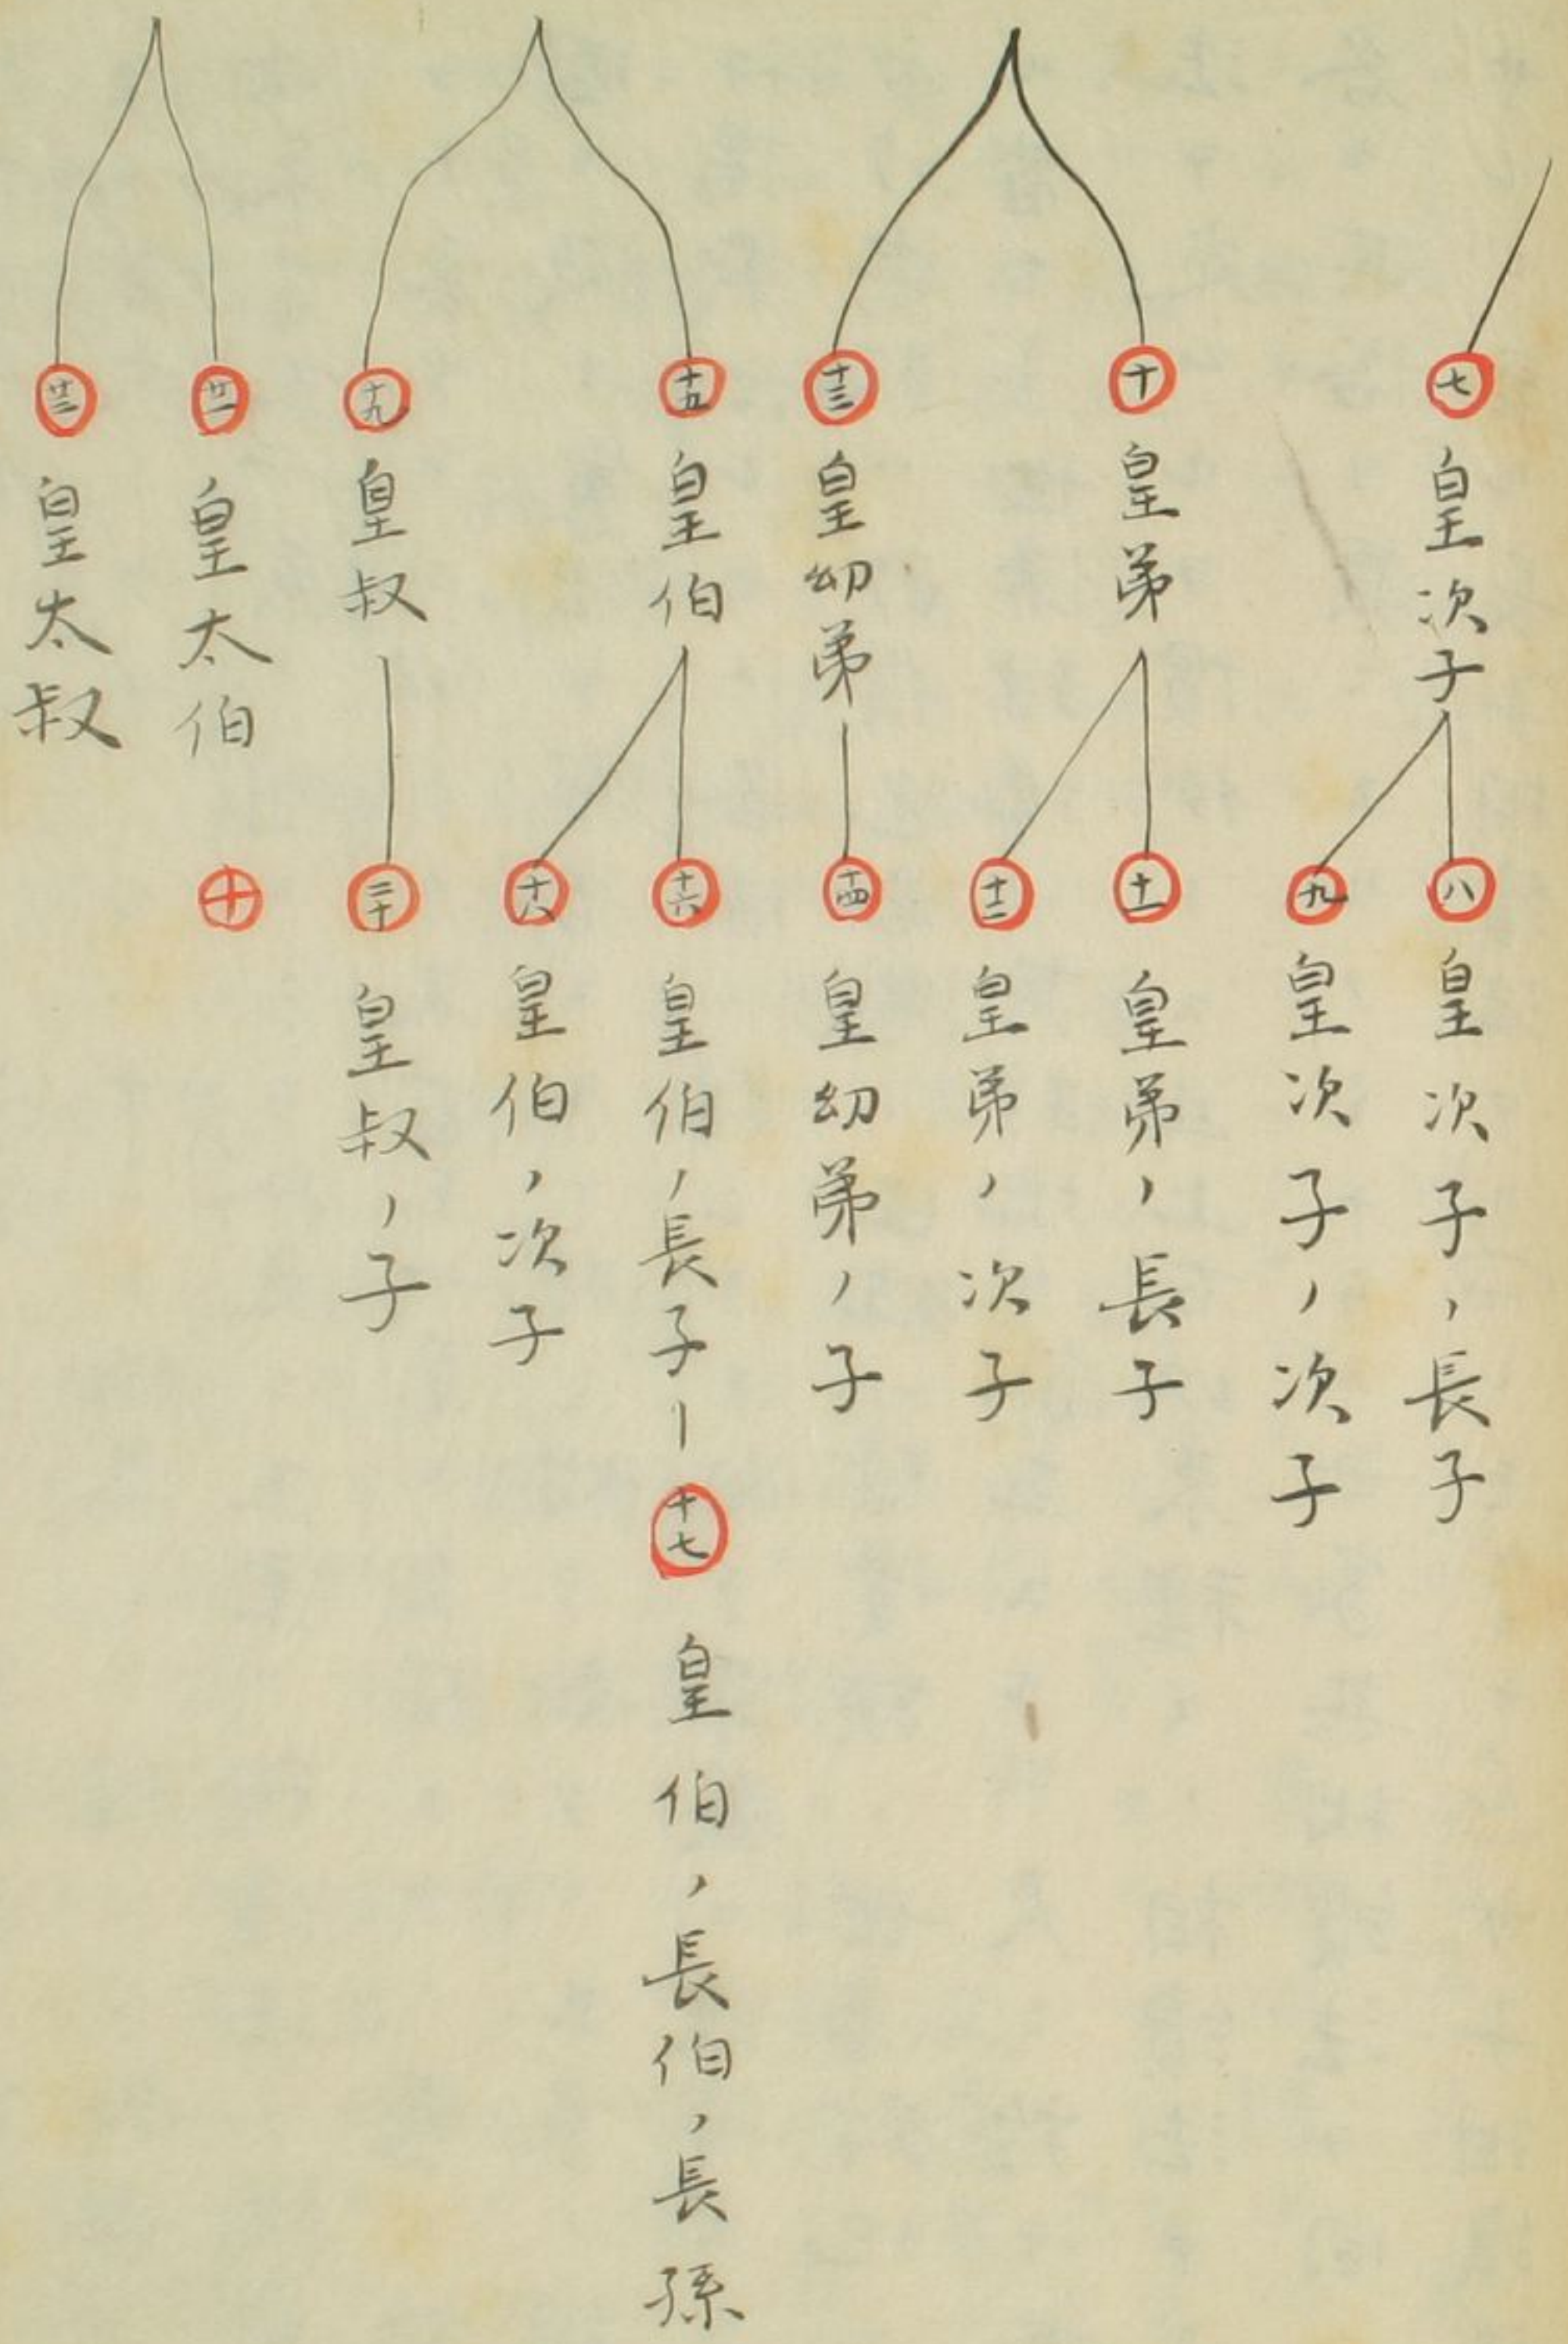 七 皇次子
八 皇次子,長子
九 皇次子,次子
十 皇弟
十一 皇弟,長子
十二 皇弟,次子
十三 皇幼弟
十四 皇幼弟,子
十五 皇伯
十六 皇伯,長子
十七 皇伯,長伯,長孫
十八 皇伯,次子
十九 皇叔
二十 皇叔,子
廿一 皇太伯
十
廿二 皇太叔